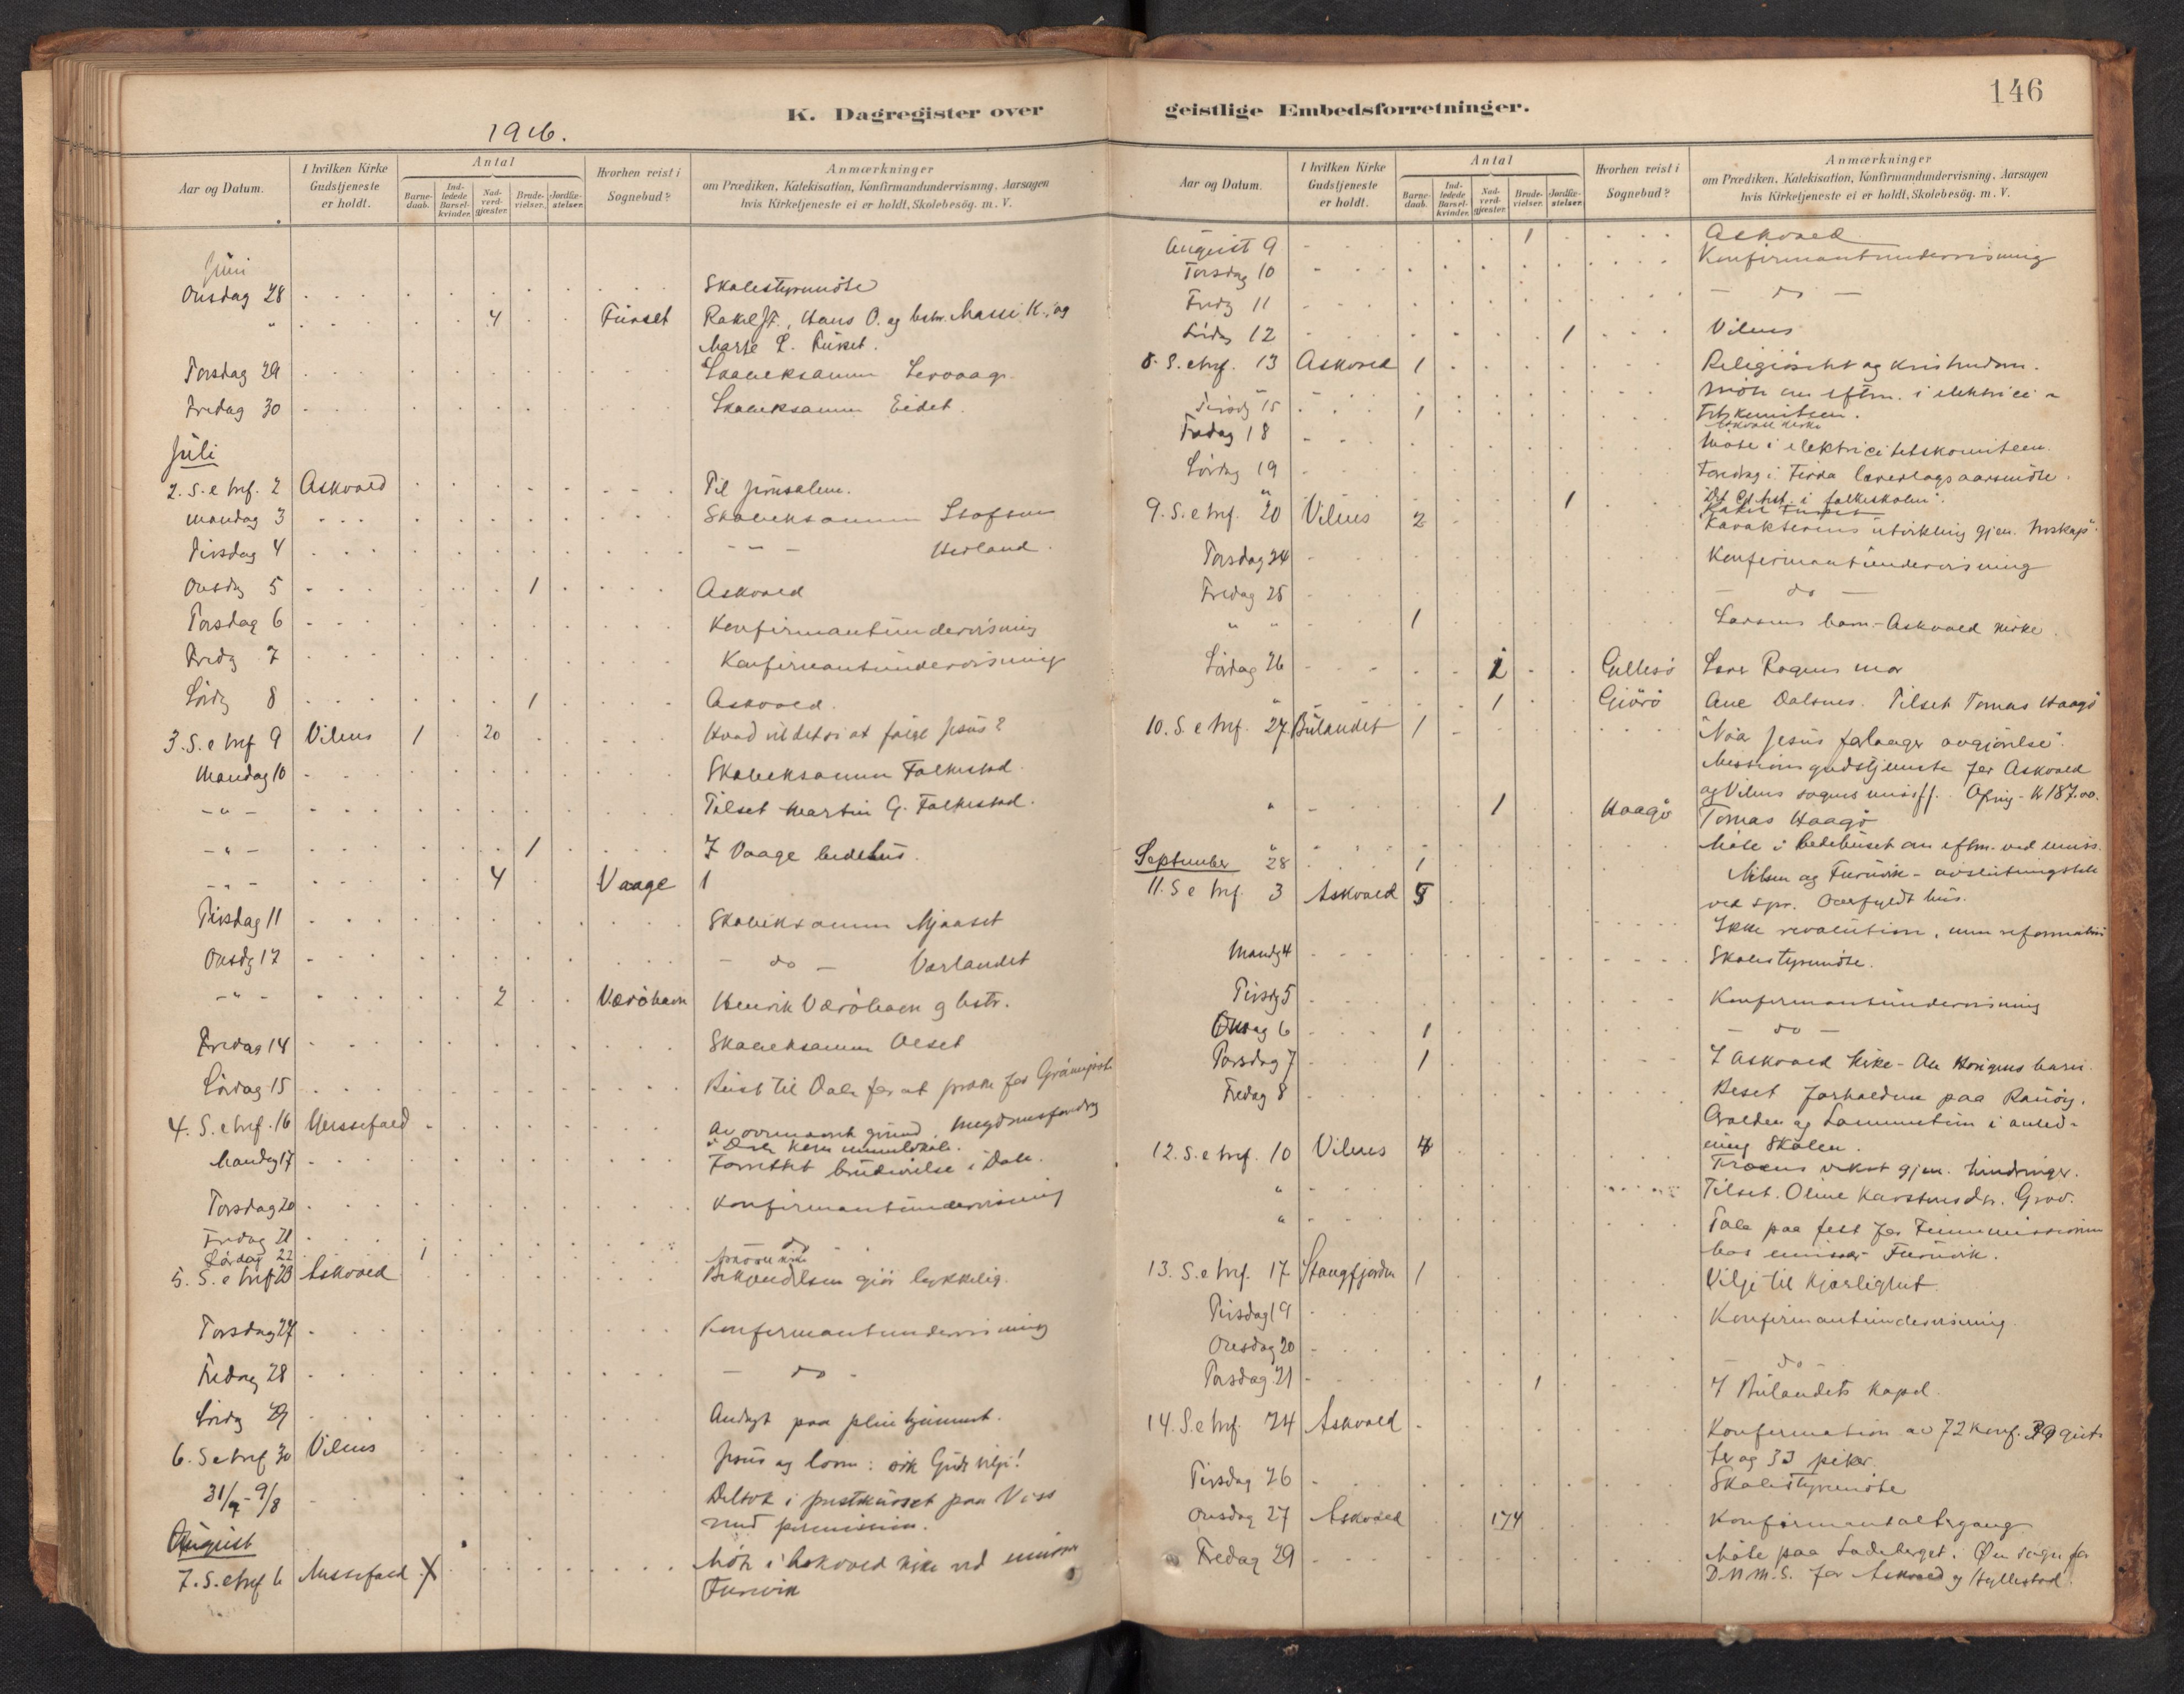 K. Dagregister over
1916.
Aar og Datum.
I hvilken Kirke Gudstjeneste er holdt.
Antal
Barnedaab.
Indledede Barselkvinder.
Nadverdgjæster.
Brudevielser.
Jordfæstelser.
Hvorhen reist i Sognebud?
Anmærkninger
om Prædiken, Katekisation, Konfirmandundervisning, Aarsagen
hvis Kirketjeneste ei er holdt, Skolebesög. m. V.
Juni
Onsdag 28 Skolestyremöte
" 4 Fürset Rakel Hans O. og hstr. Massi K., og
L. Fürset.
Torsdag 29 Skoleeksamen Levaag
Fredag 30 Skoleeksamen Eidet.
Juli
2. S. e tref. 2 Askvold Til Jerusalem.
Mandag 3 Skoleeksamen Stafsun
Tirsdag 4 - - - Herland.
Onsdg 5 1 Askvold
Torsdag 6 Konfirmantundervisning
Fredg 7 Konfirmantundervisning
Lördg 8 1 Askvold.
3. S. e tref 9 Vilnes 1 20 Hvad vil det si at fölge Jesus?
Mandag 10 Skoleeksamen Folkestad
- " - Tilset Martin G. Folkestad.
- " - 1 I Vaage bedehus.
- " - 4 Vaage 1
Tirsdag 11 Skoleeksamen Mjaaset
Onsdg 12 - do - Værlandet
- " - 2 Væröhavn Henrik Væröhavn og hstr.
Fredag 14 Skoleeksamen Olset
Lördag 15 Reist til Dale for at pröve for
4. S. e tref. 16 Messefald av ovennævnte grund. Ungdomsforedrag
i Dale kommunelokale.
Mandag 17 Forrettet brudevielse i Dale.
Torsdag 20 Konfirmantundervisning
Fredag 21 do
Lördag 22 1 Askvold kirke
5. S. e tref 23 Askvold Bekjendelsen gjör lykkelig.
Torsdag 27 Konfirmantundervisning
Fredag 28 - do -
Lördg 29 Andagt paa pleiehjemmet.
6. S e tref 30 Vilnes Jesus og loven: Guds vilje!
31/7 - 9/8 Deltok i prestekurset paa Voss
med permission.
August
7. S. e tref 6 Messefald X Möte i Askvold kirke ved emissær
Furevik
geistlige Embedsforretninger.
146
Aar og Datum.
I hvilken Kirke Gudstjeneste er holdt.
Antal
Barnedaab.
Indledede Barselkvinder.
Nadverdgjæster.
Brudevielser.
Jordfæstelser.
Hvorhen reist i Sognebud?
Anmærkninger
om Prædiken, Katekisation, Konfirmandundervisning, Aarsagen
hvis Kirketjeneste ei er holdt, Skolebesög. m. V.
August 9 1 Askvold
Torsdag 10 Konfirmantundervisning
Fredg 11 - do -
Lördag 12 1 Vilnes
8. S. e tref. 13 Askvold 1 Religiösitet og kristendom.
möte om eftm. i elektrici-
Tirsdg 15 1 tetskomiteen.
Askvold kirke
Fredag 18 Möte i elektricitetskomiteen.
Lördag 19 Foredrag i Firda lærerlags aarsmöte.
"Det i folkeskolen".
9. S. e tref. 20 Vilnes 2 1 Rakel Fürset
Karakterens utvikling gjen.
Torsdag 24 Konfirmantundervisning
Fredag 25 - do -
" " 1 Larsens barn - Askvold kirke.
Lördag 26 1 Gillesö Lars Rognes mor
" 1 Gjörö Ane Dalsnes. Tilset Tomas Haagö
10. S. e tref. 27 Bulandet 1 "Naar Jesus forlanger avgjörelse".
Missionsgudstjeneste for Askvold
og Vilnes sogns missf. Ofring - kr 187.00.
" 1 Haagö Tomas Haagö
" Möte i bedehuset om eftm. ved emiss.
September 28 1 Nilsen og Furevik - avslutningstale
11. S e tref. 3 Askvold 5 ved spr. Overfyldt hus.
Ikke revolution, men reformation
Mandg 4 Skolestyremöte.
Tirsdg 5 Konfirmantundervisning
Onsdag 6 1 - do -
Torsdag 7 1 I Askvold kirke - barn.
Fredag 8 Beset forholdene paa
og i anled-
ning skolen.
12. S. e tref. 10 Vilnes 4 Troens vekst gjen. hindringer.
" Tilset. Oline Karstensdtr. Grov.
" Tale paa fest for Finnemissionen
hos emissær Furevik.
13. S. e tref. 17 Stangfjorden 1 Vilje til kjærlighet.
Tirsdag 19 Konfirmantundervisning
Onsdag 20 - do -
Torsdag 21 1 I Bulandets kapel.
14. S. e tref. 24 Askvold Konfirmation av 72 konf. 39 gut-
ter og 33 piker
Tirsdag 26 Skolestyremöte
Onsdag 27 Askvold 174 Konfirmantaltergang
Fredag 29 Möte paa Ladeberget.
D.N.M.S. for Askvold og Hyllestad.